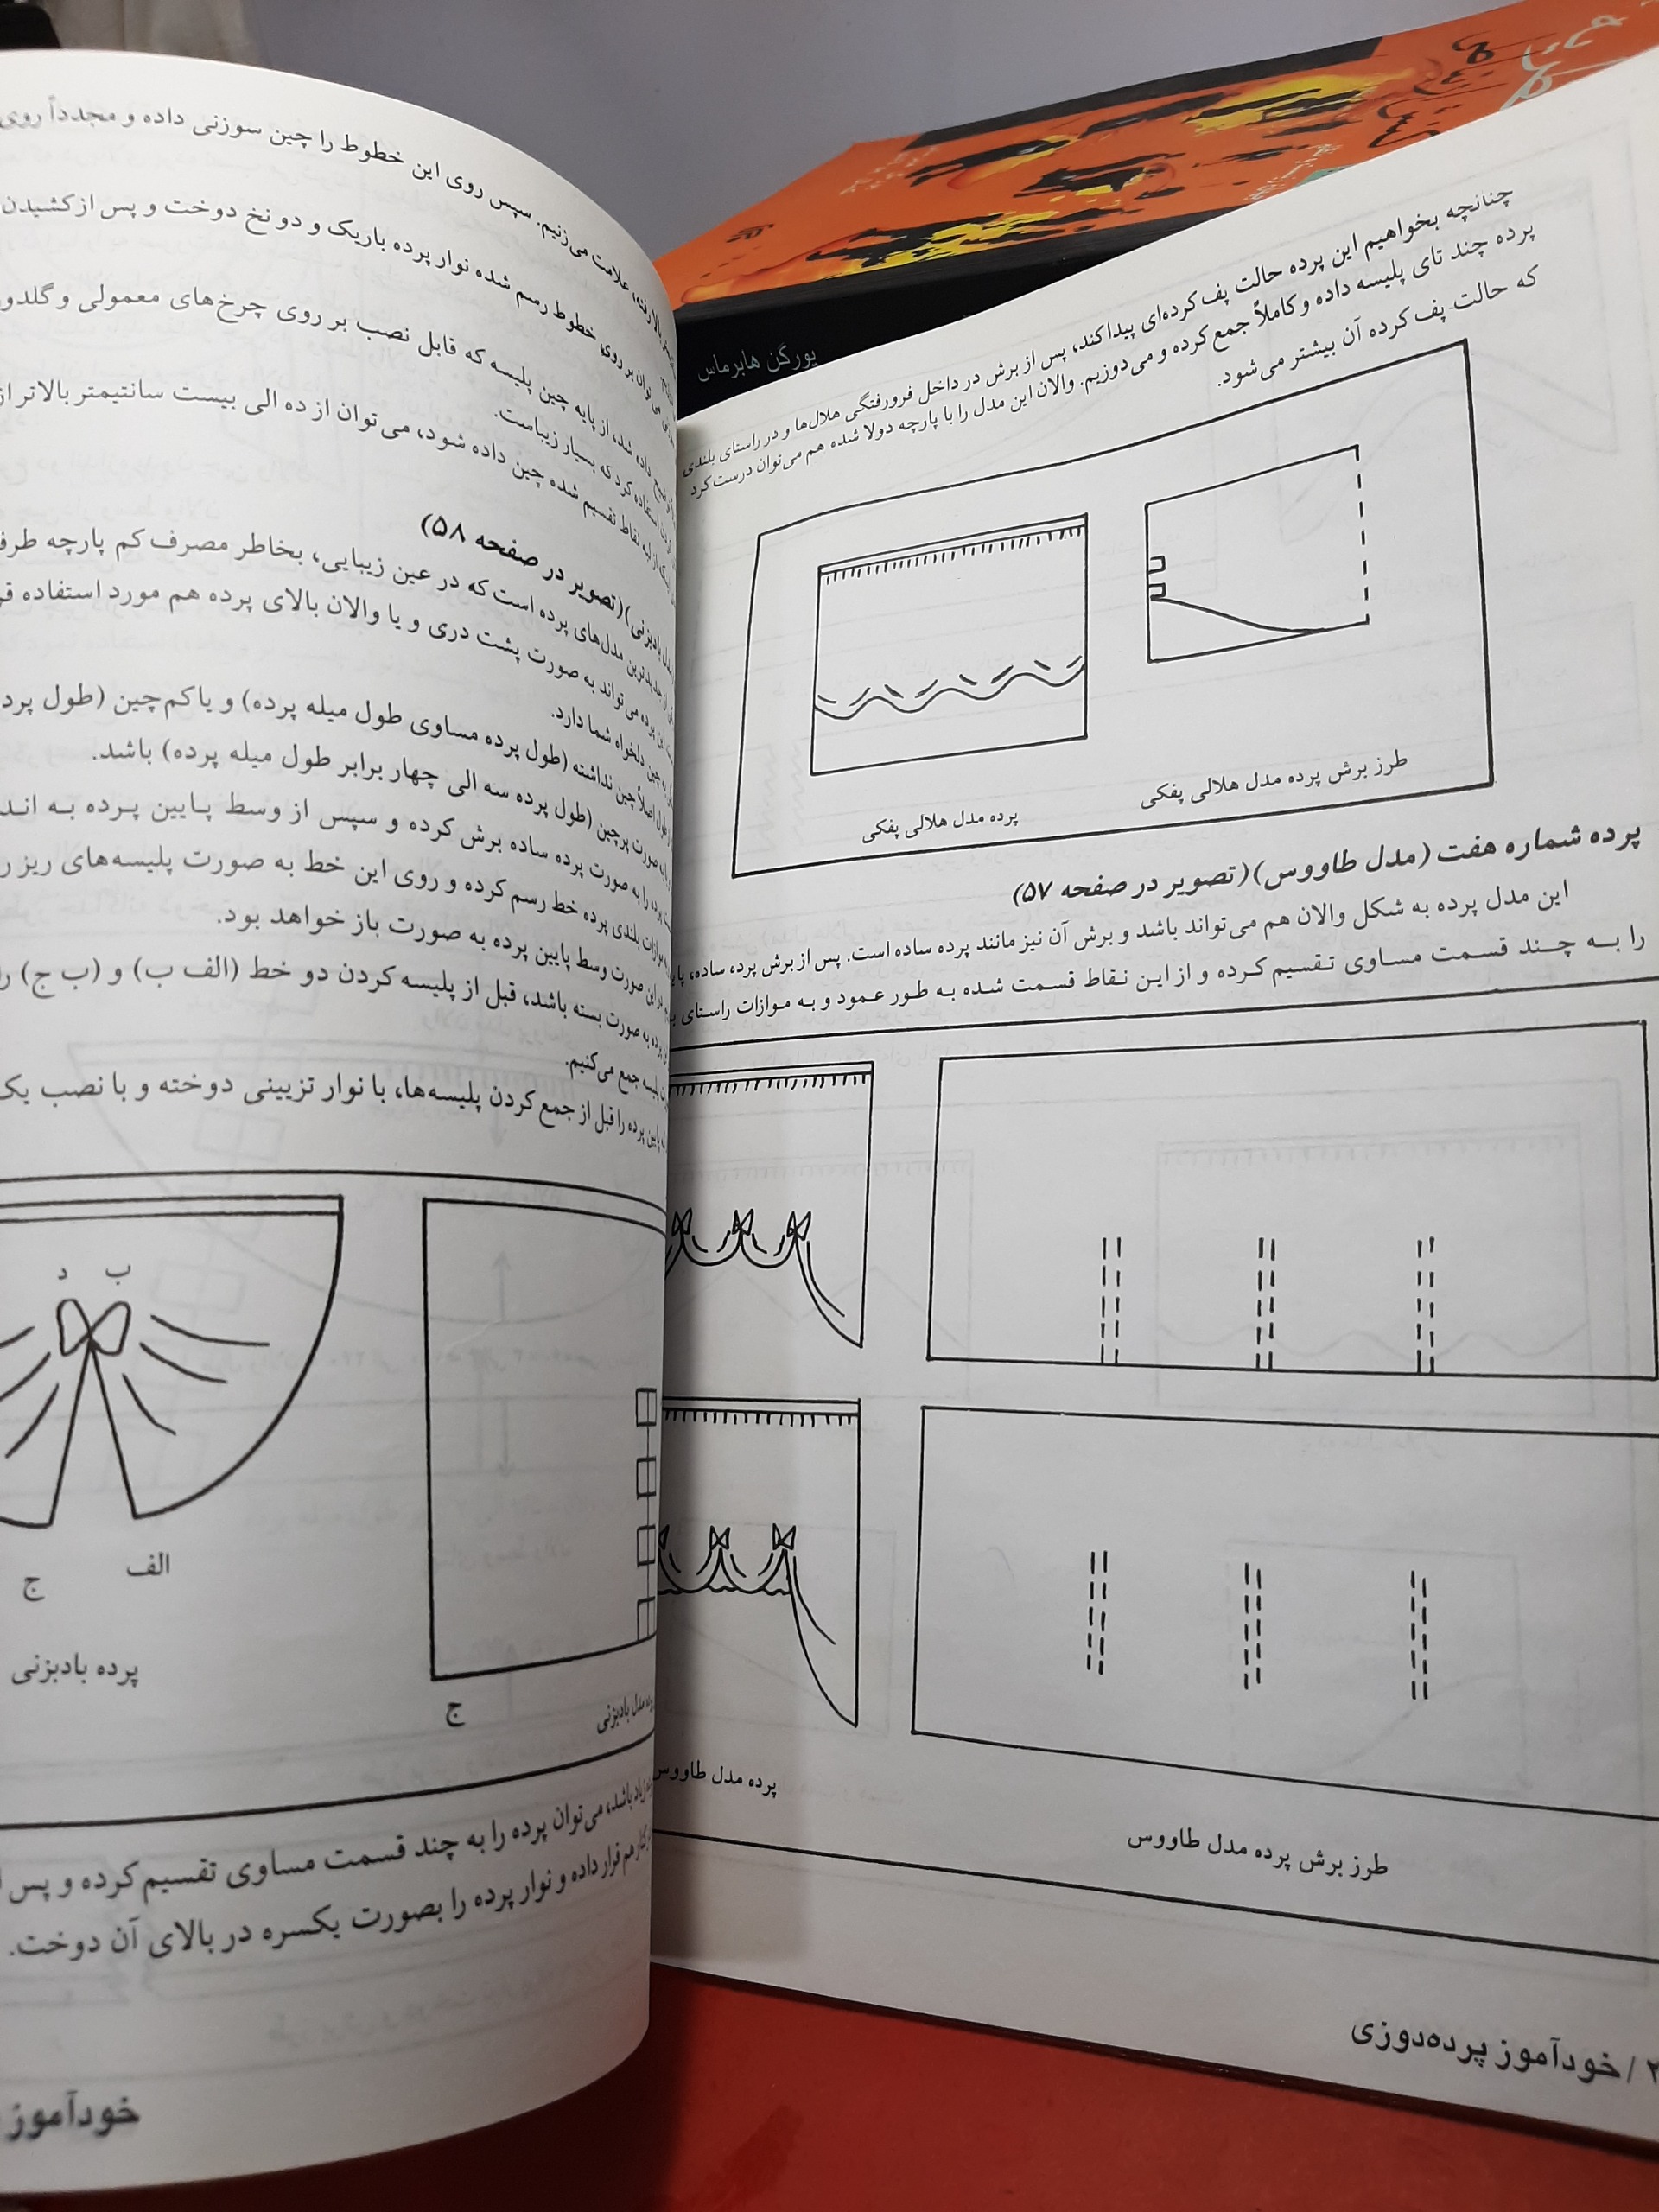 یورگن هابرماس
چنانچه بخواهیم این پرده حالت پف‌کرده‌ای پیدا کند، پس از برش در داخل فرورفتگی هلال‌ها و در راستای بلندی
پرده چند تای پلیسه داده و کاملاً جمع کرده و می‌دوزیم. والان این مدل را با پارچه دولا شده هم می‌توان درست کرد
که حالت پف‌کرده آن بیشتر می‌شود.
طرز برش پرده مدل هلالی پفکی
پرده مدل هلالی پفکی
پرده شماره هفت (مدل طاووس) (تصویر در صفحه ۵۷)
این مدل پرده به شکل والان هم می‌تواند باشد و برش آن نیز مانند پرده ساده است. پس از برش پرده ساده،
را بـه چـند قسمت مساوی تـقسیم کـرده و از ایـن نـقاط قسمت شده بـه طـور عـمود و بـه مـوازات راستای
پرده مدل طاووس
طرز برش پرده مدل طاووس
/ خودآموز پرده‌دوزی
بالا رفته، علامت می‌زنیم. سپس روی این خطوط را چین سوزنی داده و مجدداً روی
می‌توان بر روی خطوط رسم شده نوار پرده باریک و دو نخ دوخت و پس از کشیدن
داده شد، از پایه چین پلیسه که قابل نصب بر روی چرخ‌های معمولی و گلدوزی
استفاده کرد که بسیار زیباست.
نقاط تقسیم شده چین داده شود، می‌توان از ده الی بیست سانتیمتر بالاتر از
بادبزنی) (تصویر در صفحه ۵۸)
جدیدترین مدل‌های پرده است که در عین زیبایی، بخاطر مصرف کم پارچه
این پرده می‌تواند به صورت پشت دری و یا والان بالای پرده هم مورد استفاده
چین دلخواه شما دارد.
اصلاً چین نداشته (طول پرده مساوی طول میله پرده) و یا کم‌چین (طول
به صورت پرچین (طول پرده سه الی چهار برابر طول میله پرده) باشد.
پرده را به صورت پرده ساده برش کرده و سپس از وسط پـایین پـرده بـه
موازات بلندی پرده خط رسم کرده و روی این خط به صورت پلیسه‌های ریز
در این صورت وسط پایین پرده به صورت باز خواهد بود.
پرده به صورت بسته باشد، قبل از پلیسه کردن دو خط (الف ب) و (ب ج) را
پلیسه جمع می‌کنیم.
پایین پرده را قبل از جمع کردن پلیسه‌ها، با نوار تزیینی دوخته و با نصب یک
د ب
ج الف
پرده بادبزنی
ج
مدل بادبزنی
زیاد باشد، می‌توان پرده را به چند قسمت مساوی تقسیم کرده و پس
کنار هم قرار داده و نوار پرده را بصورت یکسره در بالای آن دوخت.
خودآموز